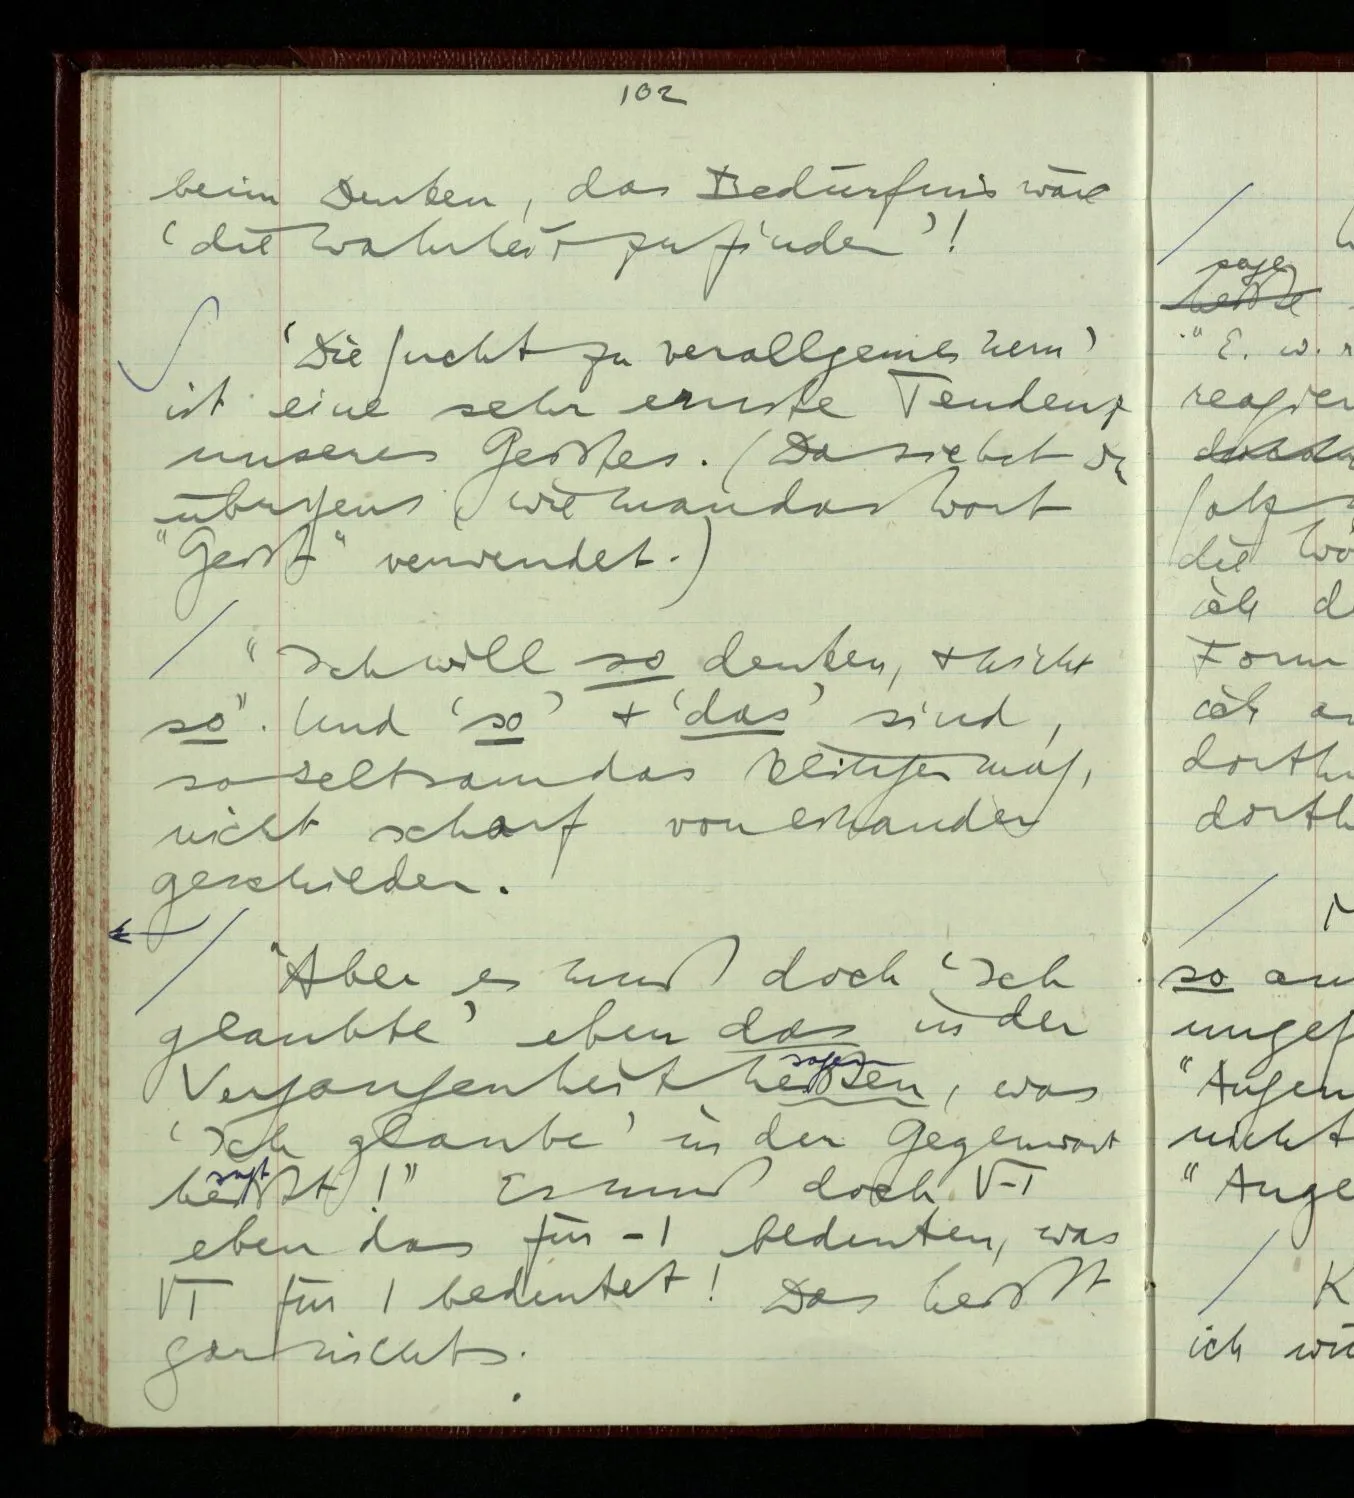 102
beim Denken, das Bedürfnis wäre
'die Wahrheit zu finden'!
'Die Sucht zu verallgemeinern'
ist eine sehr ernste Tendenz
unseres Geistes. (Da siehst Du
übrigens, wie man das Wort
"Geist" verwendet.)
"Ich will so denken, + nicht
so". Und 'so' + 'das' sind,
so seltsam das klingen mag,
nicht scharf voneinander
geschieden.
"Aber es muß doch 'Ich
glaubte' eben das in der
sagen
Vergangenheit heißen, was
'Ich glaube' in der Gegenwart
sagt
heißt!" Es muß doch √-1
eben das für -1 bedeuten, was
√1 für 1 bedeutet! Das heißt
gar nichts.
sage
heiße
" E. w.
reagier
ich
Form
ich
so
"Augen
nicht
"Auge
K
ich